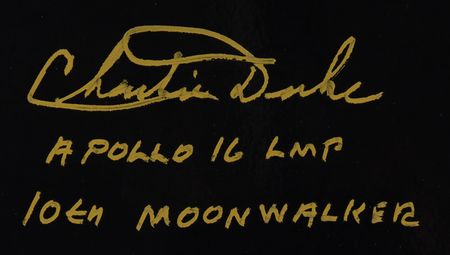 Charlie Duke
APOLLO 16 LMP
10th MOONWALKER